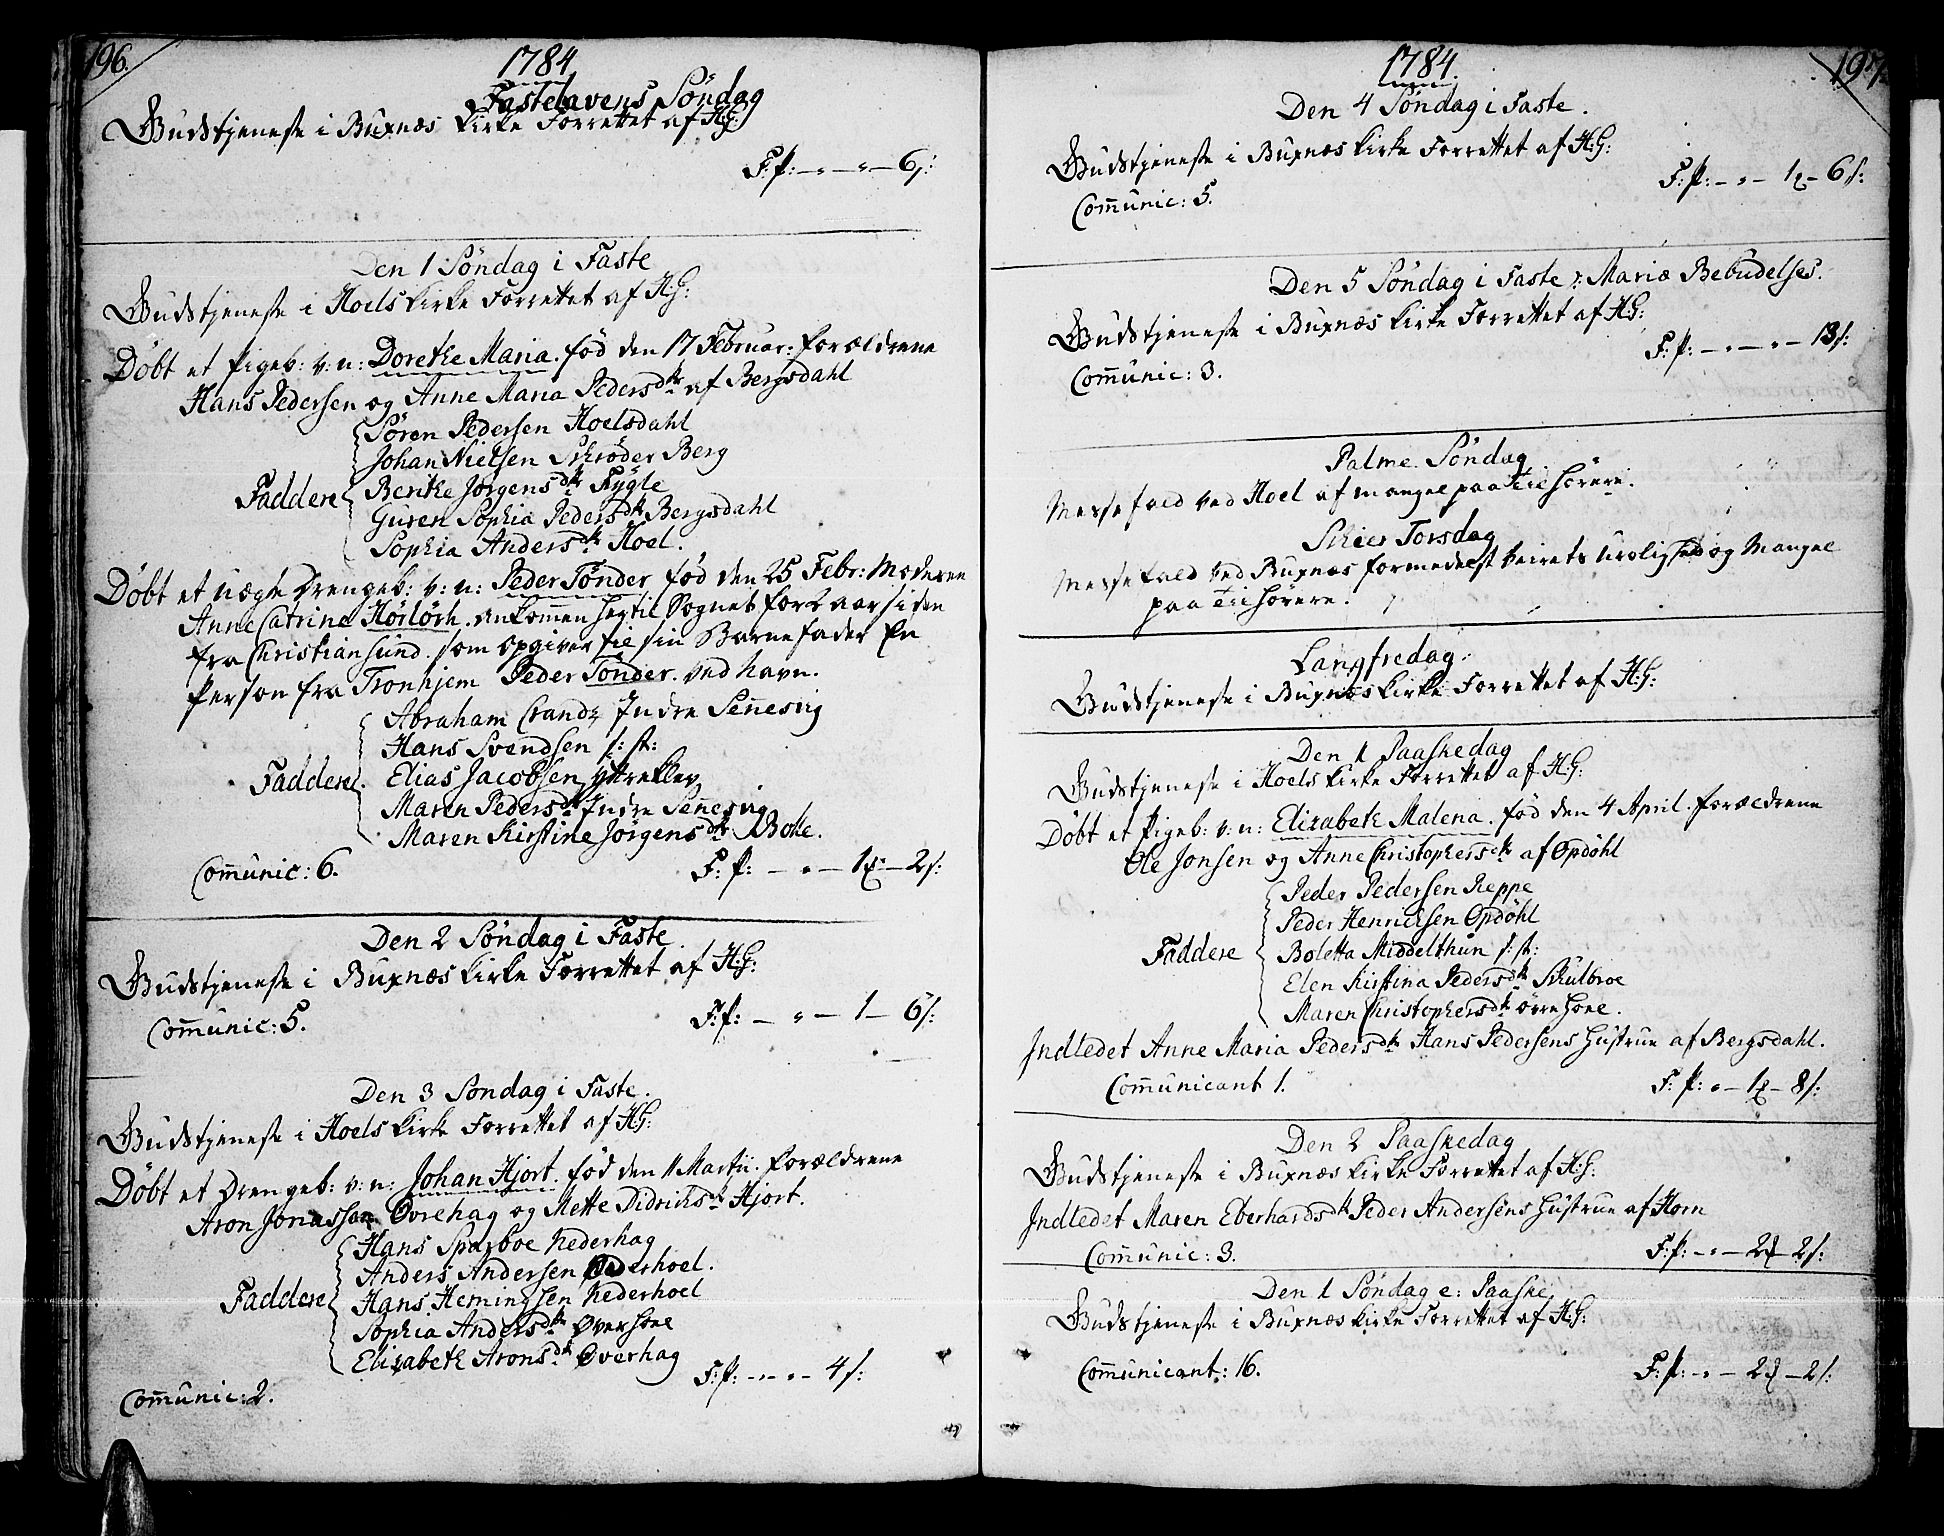 196.
1784
Fastelavens Söndag
Gudstjeneste i Buxnæs Kirke Forrettet af H:G:
F: P: — „ — „ — 6 s:
Den 1 Söndag i Faste
Gudstjeneste i Hoels Kirke Forrettet af H:G:
Döbt et Pigeb: v: n: Doretke Maria. fød den 17 Februar: forældrene
Hans Pedersen og Anne Maria Pedersdtr af Bergsdahl
Sören Pedersen Hoelsdahl
Johan Nielsen Schröder Berg
Faddere Bentke Jörgensdtr Fygle
Guren Sophia Pedersdtr Bergsdahl
Sophia Andersdtr Hoel.
Döbt et uægte Drengeb: v: n: Peder Tönder fød den 25 Febr: Moderen
Anne Catrina Hörlörk. ankommen hertil Sognet for 2 aar siden
fra Christiansund. som opgiver til sin Barnefader En
Person fra Tronhjem Peder Tönder. ved havn.
Abraham Crandz Indre Sennesvig
Hans Svendsen s: st:
Faddere. Elias Jacobsen Yttreklev
Maren Pedersdtr Indre Sennesvig
Maren Kirstine Jörgensdtr Bolle.
Communic: 6. F: P: — „ — 1 — 2 s:
Den 2 Söndag i Faste
Gudstjeneste i Buxnæs Kirke Forrettet af H:G:
Communic: 5. F: P: — „ — 1 — 6 s:
Den 3 Söndag i Faste.
Gudstjeneste i Hoels Kirke Forrettet af H:G:
Döbt et Drengeb: v: n: Johan Hjort. fød den 11 Martii. forældrene
Aron Jonassen Øvrehag og Mette Didrichsdtr Hjort.
Hans Sparboe Nederhag
Anders Andersen Nederhoel.
Faddere Hans Hemingsen Nederhoel
Sophia Andersdtr Øverhoel
Elizabetk Aronsdtr Øverhag
F: P: — „ — „ — 4 s:
Communic: 2.
197.
1784.
Den 4 Söndag i Faste.
Gudstjeneste i Buxnæs Kirke Forrettet af H:G:
F: P: — „ — 1 — 6 s:
Communic: 5.
Den 5 Söndag i Faste : Mariæ Bebudelses.
Gudstjeneste i Buxnæs Kirke Forrettet af H:G:
F: P: — „ — „ — 13 s:
Communic: 3.
Palme. Söndag
Messefald ved Hoel af Mangel paa Tilhörere.
Skier Torsdag
Messefald ved Buxnæs formedelst Veirets Urolighed og Mangel
paa Tilhörere.
Langfredag.
Gudstjeneste i Buxnæs Kirke Forrettet af H:G:
Den 1 Paaskedag
Gudstjeneste i Hoels Kirke Forrettet af H:G:
Döbt et Pigeb: v: n: Elizabetk Malena. fød den 4 April. forældrene
Ole Jonsen og Anne Christophersdtr af Opdöhl
Peder Pedersen Reppe
Peder Henricksen Opdöhl
Faddere Boletta Middelthun s: st:
Elen Kirstina Pedersdtr Skulbroe
Maren Christophersdtr Övrehoel.
Indledet Anne Maria Pedersdtr Hans Pedersens Hustrue af Bergsdahl.
Communicant 1. F: P: „ — 1 — 8 s:
Den 2 Paaskedag
Gudstjeneste i Buxnæs Kirke Forrettet af H:G:
Indledet Maren Eberhardsdtr Peder Andersens Hustrue af Horn
Communic: 3. F: P: — „ — 2 — 2 s:
Den 1 Söndag e: Paaske
Gudstjeneste i Buxnæs Kirke Forrettet af H:G:
Communicant: 16. F: P: — „ — 2 — 2 s: